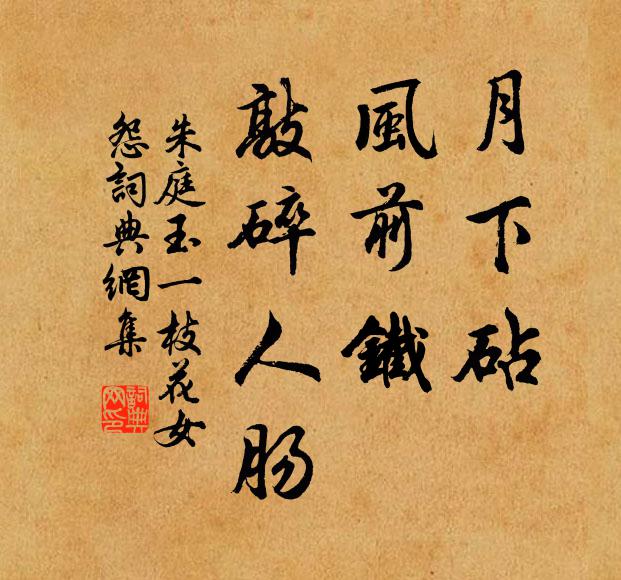 月下砧
風前鐵
敲碎人肠
朱庭玉一枝花女
怨詞典網集
詞典网印